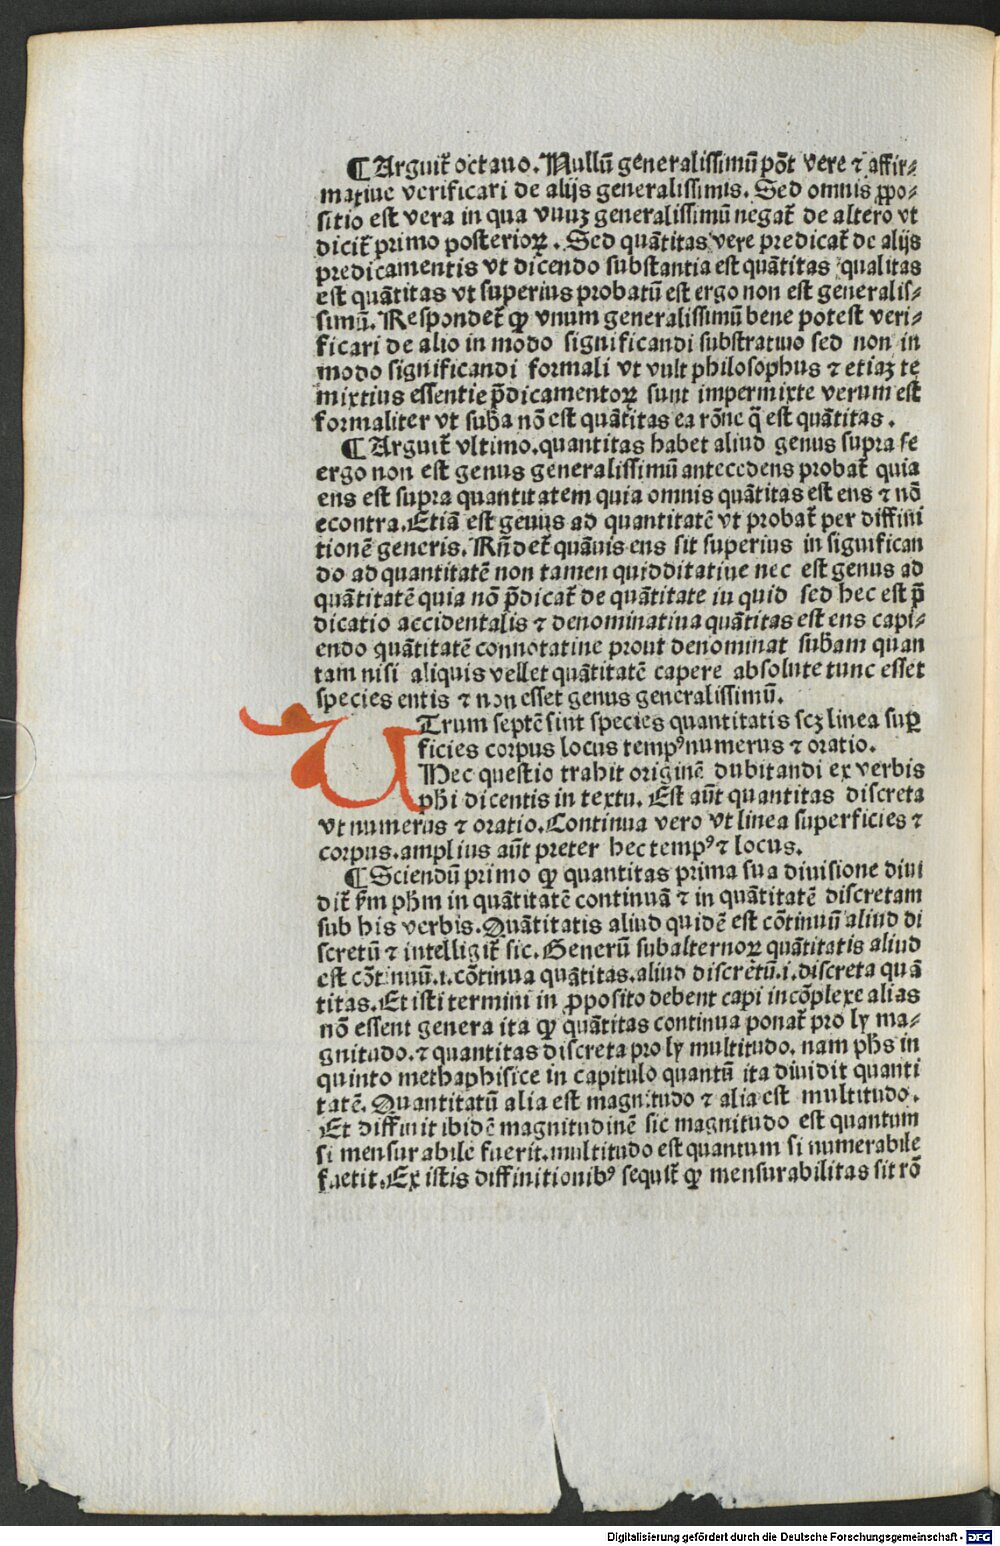 ¶ Arguit᷑ octauo. Nullū generalissimū põt vere ⁊ affir⸗
matiue verificari de alijs generalissimis. Sed omnis ꝓpo⸗
sitio est vera in qua vnuꝫ generalissimū negat᷑ de altero vt
dicit᷑ primo posterioꝝ. Sed quātitas vere predicat᷑ de alijs
predicamentis vt dicendo substantia est quātitas qualitas
est quātitas vt superius probatū est ergo non est generalis⸗
simū. Respondet᷑ ꝙ vnum generalissimū bene potest veri⸗
ficari de alio in modo significandi substratiuo sed non in
modo significandi formali vt vult philosophus ⁊ etiaꝫ te
mixtius essentie p̄dicamentoꝝ sunt impermixte verum est
formaliter vt sub̄a nō est quātitas ea rōne q̄ est quātitas.
¶ Arguit᷑ vltimo. quantitas habet aliud genus supra se
ergo non est genus generalissimū antecedens probat᷑ quia
ens est supra quantitatem quia omnis quātitas est ens ⁊ nō
econtra. Etiā est genus ad quantitatē vt probat᷑ per diffini
tionē generis. Rn̄det᷑ quāuis ens sit superius in significan
do ad quantitatē non tamen quidditatiue nec est genus ad
quātitatē quia nō p̄dicat᷑ de quātitate in quid sed hec est p̄
dicatio accidentalis ⁊ denominatiua quātitas est ens capi⸗
endo quātitatē connotatiue prout denominat sub̄am quan
tam nisi aliquis vellet quātitatē capere absolute tunc esset
species entis ⁊ non esset genus generalissimū.
UTrum septē sint species quantitatis scꝫ linea suꝑ
ficies corpus locus tempꝰ numerus ⁊ oratio.
Hec questio trahit originē dubitandi ex verbis
ph̄i dicentis in textu. Est aūt quantitas discreta
vt numerus ⁊ oratio. Continua vero vt linea superficies ⁊
corpus. amplius aūt preter hec tempꝰ ⁊ locus.
¶ Sciendū primo ꝙ quantitas prima sua diuisione diui
dit᷑ ẜm ph̄m in quātitatē continuā ⁊ in quātitatē discretam
sub his verbis. Quātitatis aliud quidē est cōtinuū aliud di
scretū ⁊ intelligit᷑ sic. Generū subalternoꝝ quātitatis aliud
est cōtinuū .i. cōtinua quātitas. aliud discretū .i. discreta quā
titas. Et isti termini in ꝓposito debent capi incōplexe alias
nō essent genera ita ꝙ quātitas continua ponat᷑ pro ly ma⸗
gnitudo. ⁊ quantitas discreta pro ly multitudo. nam ph̄s in
quinto methaphisice in capitulo quantū ita diuidit quanti
tatē. Quantitatū alia est magnitudo ⁊ alia est multitudo.
Et diffinit ibidē magnitudinē sic magnitudo est quantum
si mensurabile fuerit. multitudo est quantum si numerabile
fuetit. Ex istis diffinitionibꝰ sequit᷑ ꝙ mensurabilitas sit rō
Digitalisierung gefördert durch die Deutsche Forschungsgemeinschaft - DFG